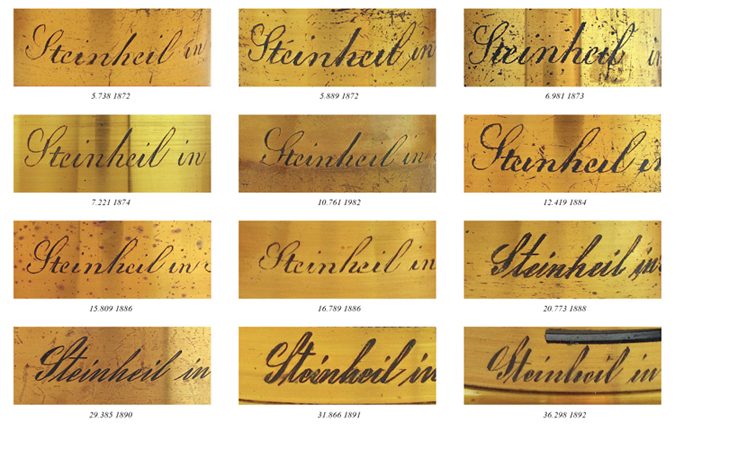 Steinheil in
5.738 1872
Steinheil in
5.889 1872
Steinheil in
6.981 1873
Steinheil in
7.221 1874
Steinheil in
10.761 1982
Steinheil in
12.419 1884
Steinheil in
15.809 1886
Steinheil in
16.789 1886
Steinheil in
20.773 1888
Steinheil in
29.385 1890
Steinheil in
31.866 1891
Steinheil in
36.298 1892